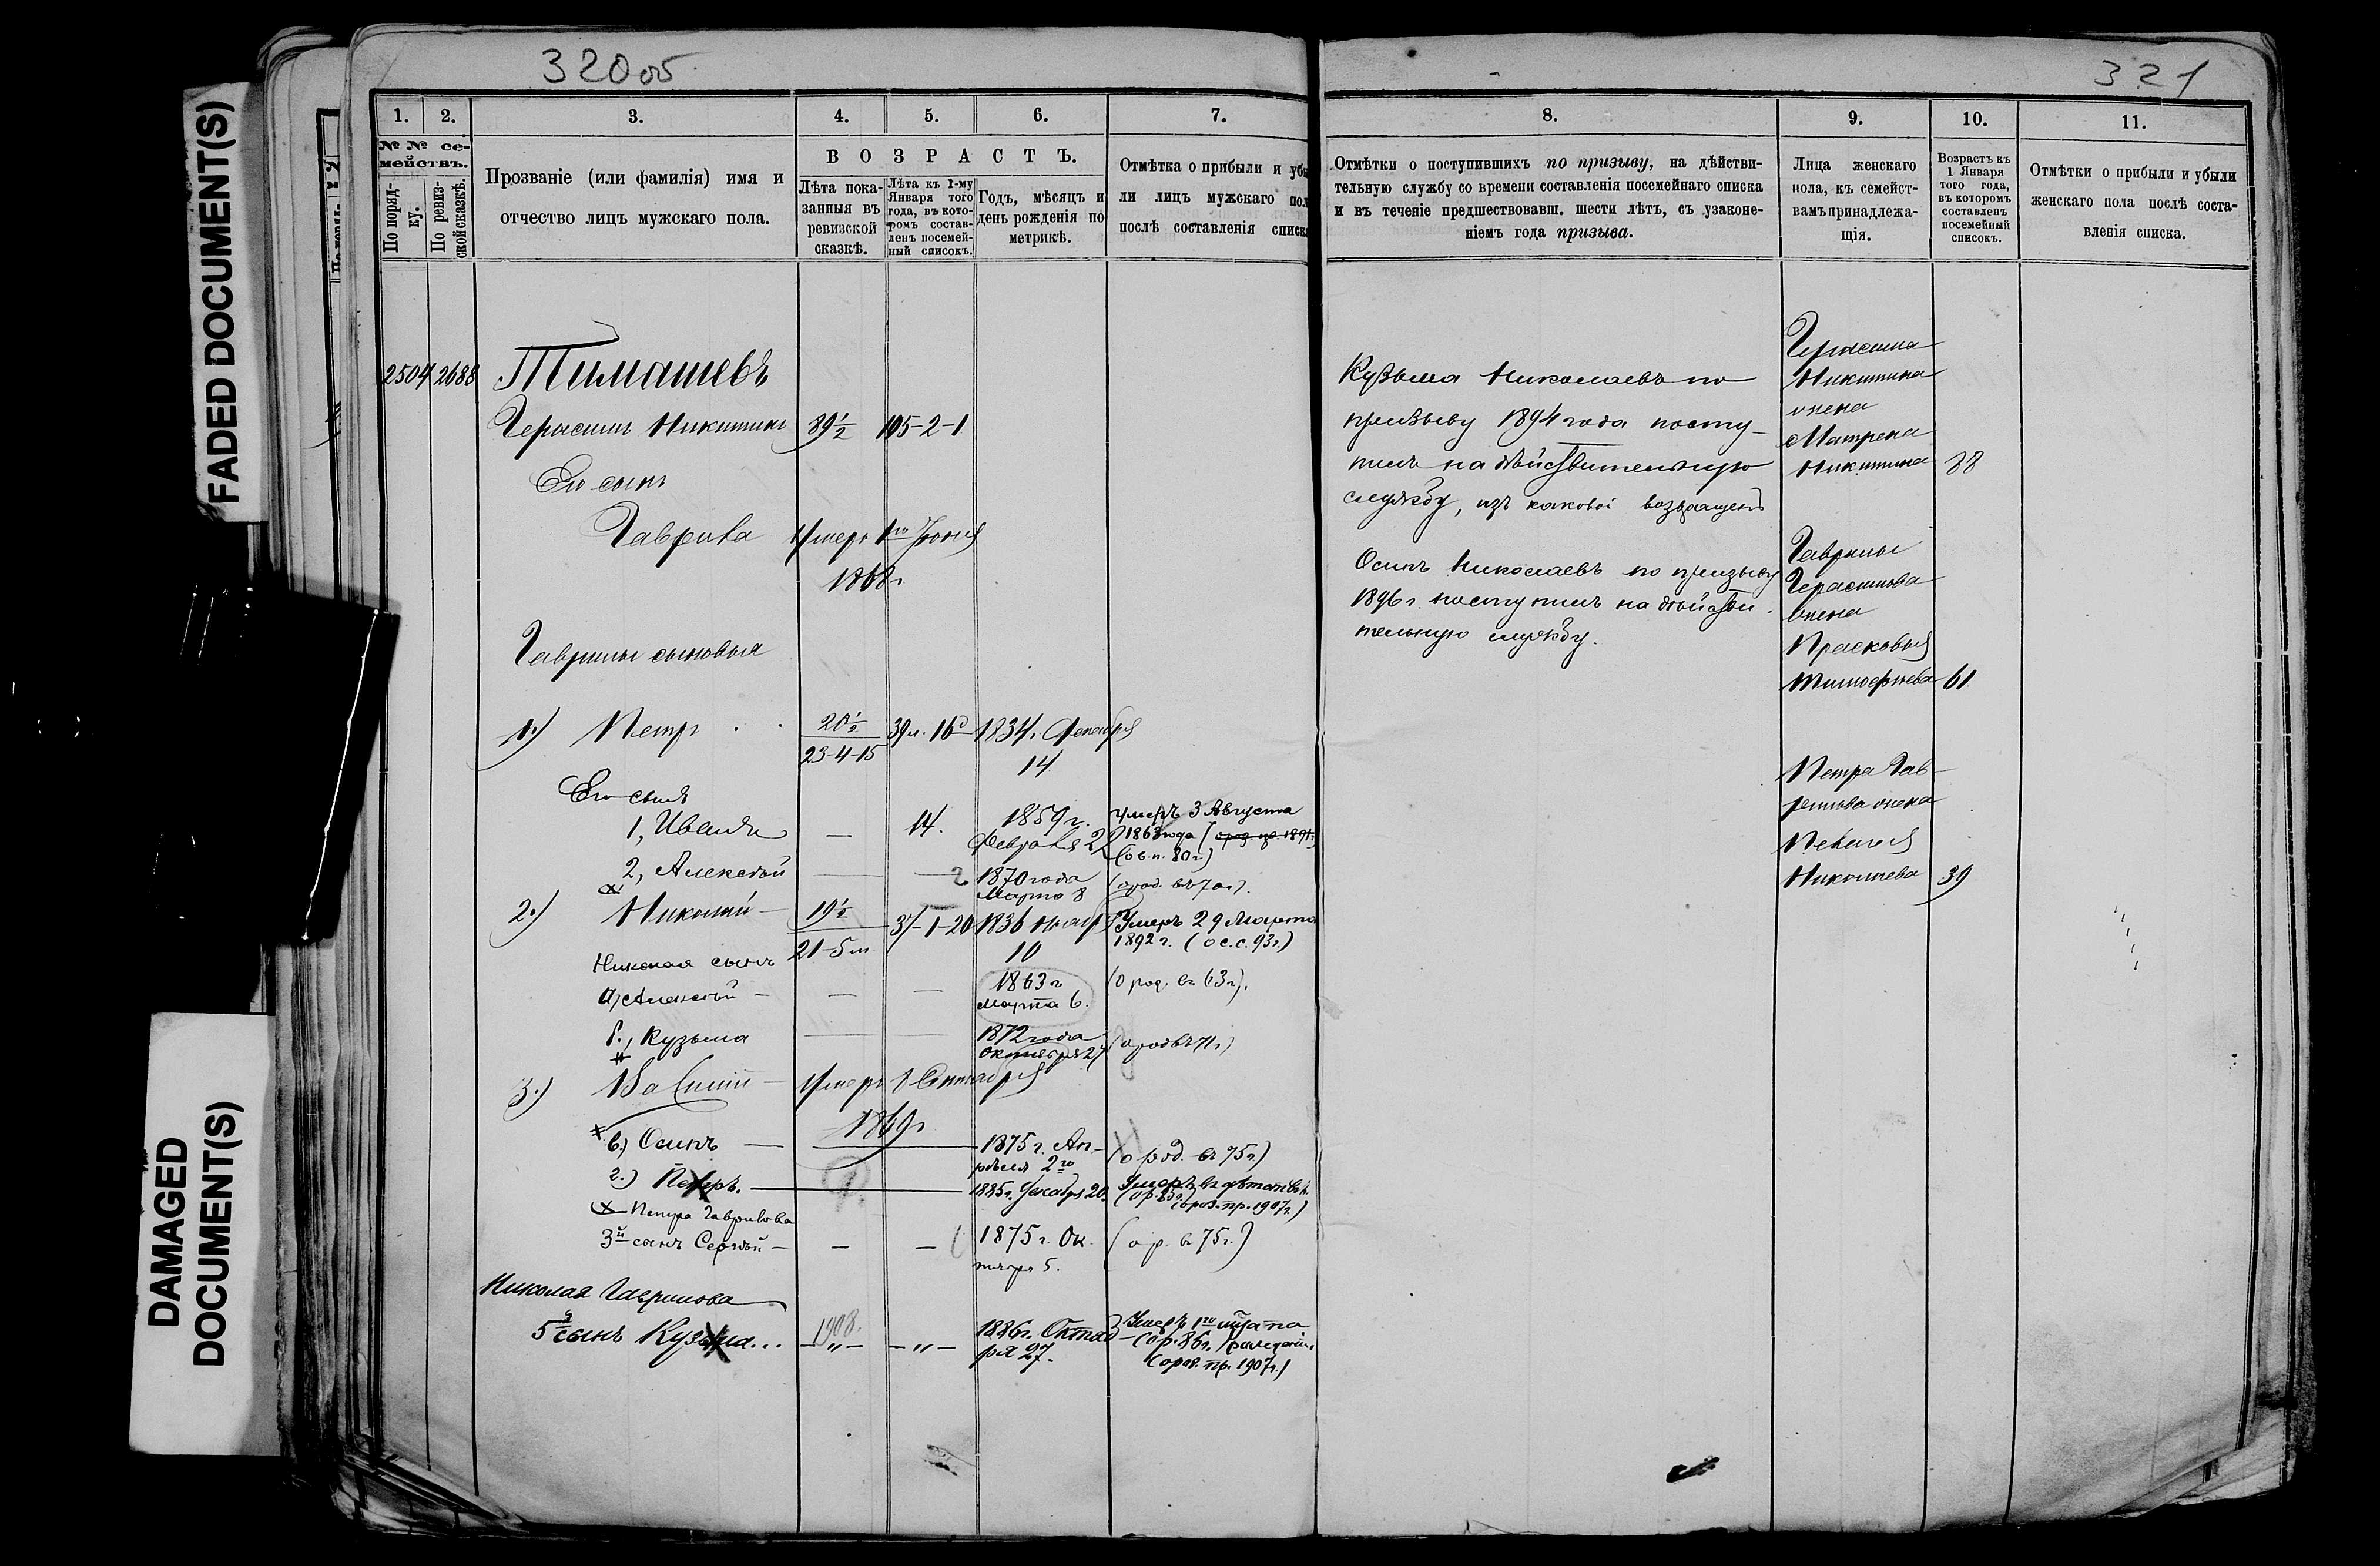 FADED DOCUMENT(S)
DAMAGED
DOCUMENT(S)
320 об
1.
2.
3.
4.
5.
6.
7.
№ № се-
мействъ.
По поряд-
ку.
По ревиз-
ской сказкѣ.
Прозваніе (или фамилія) имя и
отчество лицъ мужскаго пола.
ВОЗРАСТЪ.
Лѣта пока-
занныя въ
ревизской
сказкѣ.
Лѣта къ 1-му
Января того
года, въ кото-
ромъ состав-
ленъ посемей-
ный списокъ.
Годъ, мѣсяцъ и
день рожденія по
метрикѣ.
Отмѣтка о прибыли и убы
ли лицъ мужскаго пол
послѣ составленія списк
2504 2688 Тимашевъ
Герасимъ Никитинъ 89½ 105-2-1
Его сынъ
Гаврила Умеръ 1го Іюня
1868г.
Гаврилы сыновья
1.) Петръ 20½ 39л. 16д 1834г. Декабря
23-4-15 14
Его сынъ
1, Иванъ — 14. 1859 г. Умеръ 3 Августа
Февраля 22 1868 года
(о в.п. 80 г.)
2, Алексѣй — 2 1870 года
Марта 8
2.) Николай — 19½ 37-1-20 1836 Умеръ 29 Марта
21-5м 10 1892 г. (о с.с. 93г.)
Николая сынъ
а, Алексѣй — — — 1863 г (о род. въ 63г).
Марта 6.
б., Кузьма 1872 года
Октября 27
3.) Умеръ Сентября
1869г
в.) Осипъ — 1875 г. Ап- (о род. въ 75г.)
рѣля 2го
г.) Петръ. — 1885г. Декабря 20. Умеръ въ дѣтствѣ.
(о роз. пр. 1907г.)
Петра Гаврилова
3й сынъ Сергѣй — — — 1875 г. Ок- (о р. въ 75г.)
тября 5.
Николая Гаврилова
5й сынъ Кузьма... 1908. 1886г. Октяб Умеръ 1го
— „ — — „ — ря 27. (о р. 86г.
(о роз. пр. 1907г.)
321
8.
9.
10.
11.
Отмѣтки о поступившихъ по призыву, на дѣйстви-
тельную службу со времени составленія посемейнаго списка
и въ теченіе предшествовавш. шести лѣтъ, съ узаконе-
ніемъ года призыва.
Лица женскаго
пола, къ семейст-
вамъ принадлежа-
щія.
Возрастъ къ
1 Января
того года,
въ которомъ
составленъ
посемейный
списокъ.
Отмѣтки о прибыли и убыли
женскаго пола послѣ соста-
вленія списка.
Кузьма Николаевъ по
призыву 1894 года посту-
пилъ на дѣйствительную
службу, изъ каковой возвращенъ
Осипъ Николаевъ по призыву
1896 г. поступилъ на дѣйстви-
тельную службу.
Герасима
Никитина
жена
Матрена
Никитина 88
Гаврилы
Герасимова
жена
Прасковья
Тимофѣева 61
Петра Гав-
рилова жена
Пелагея
Николаева 39